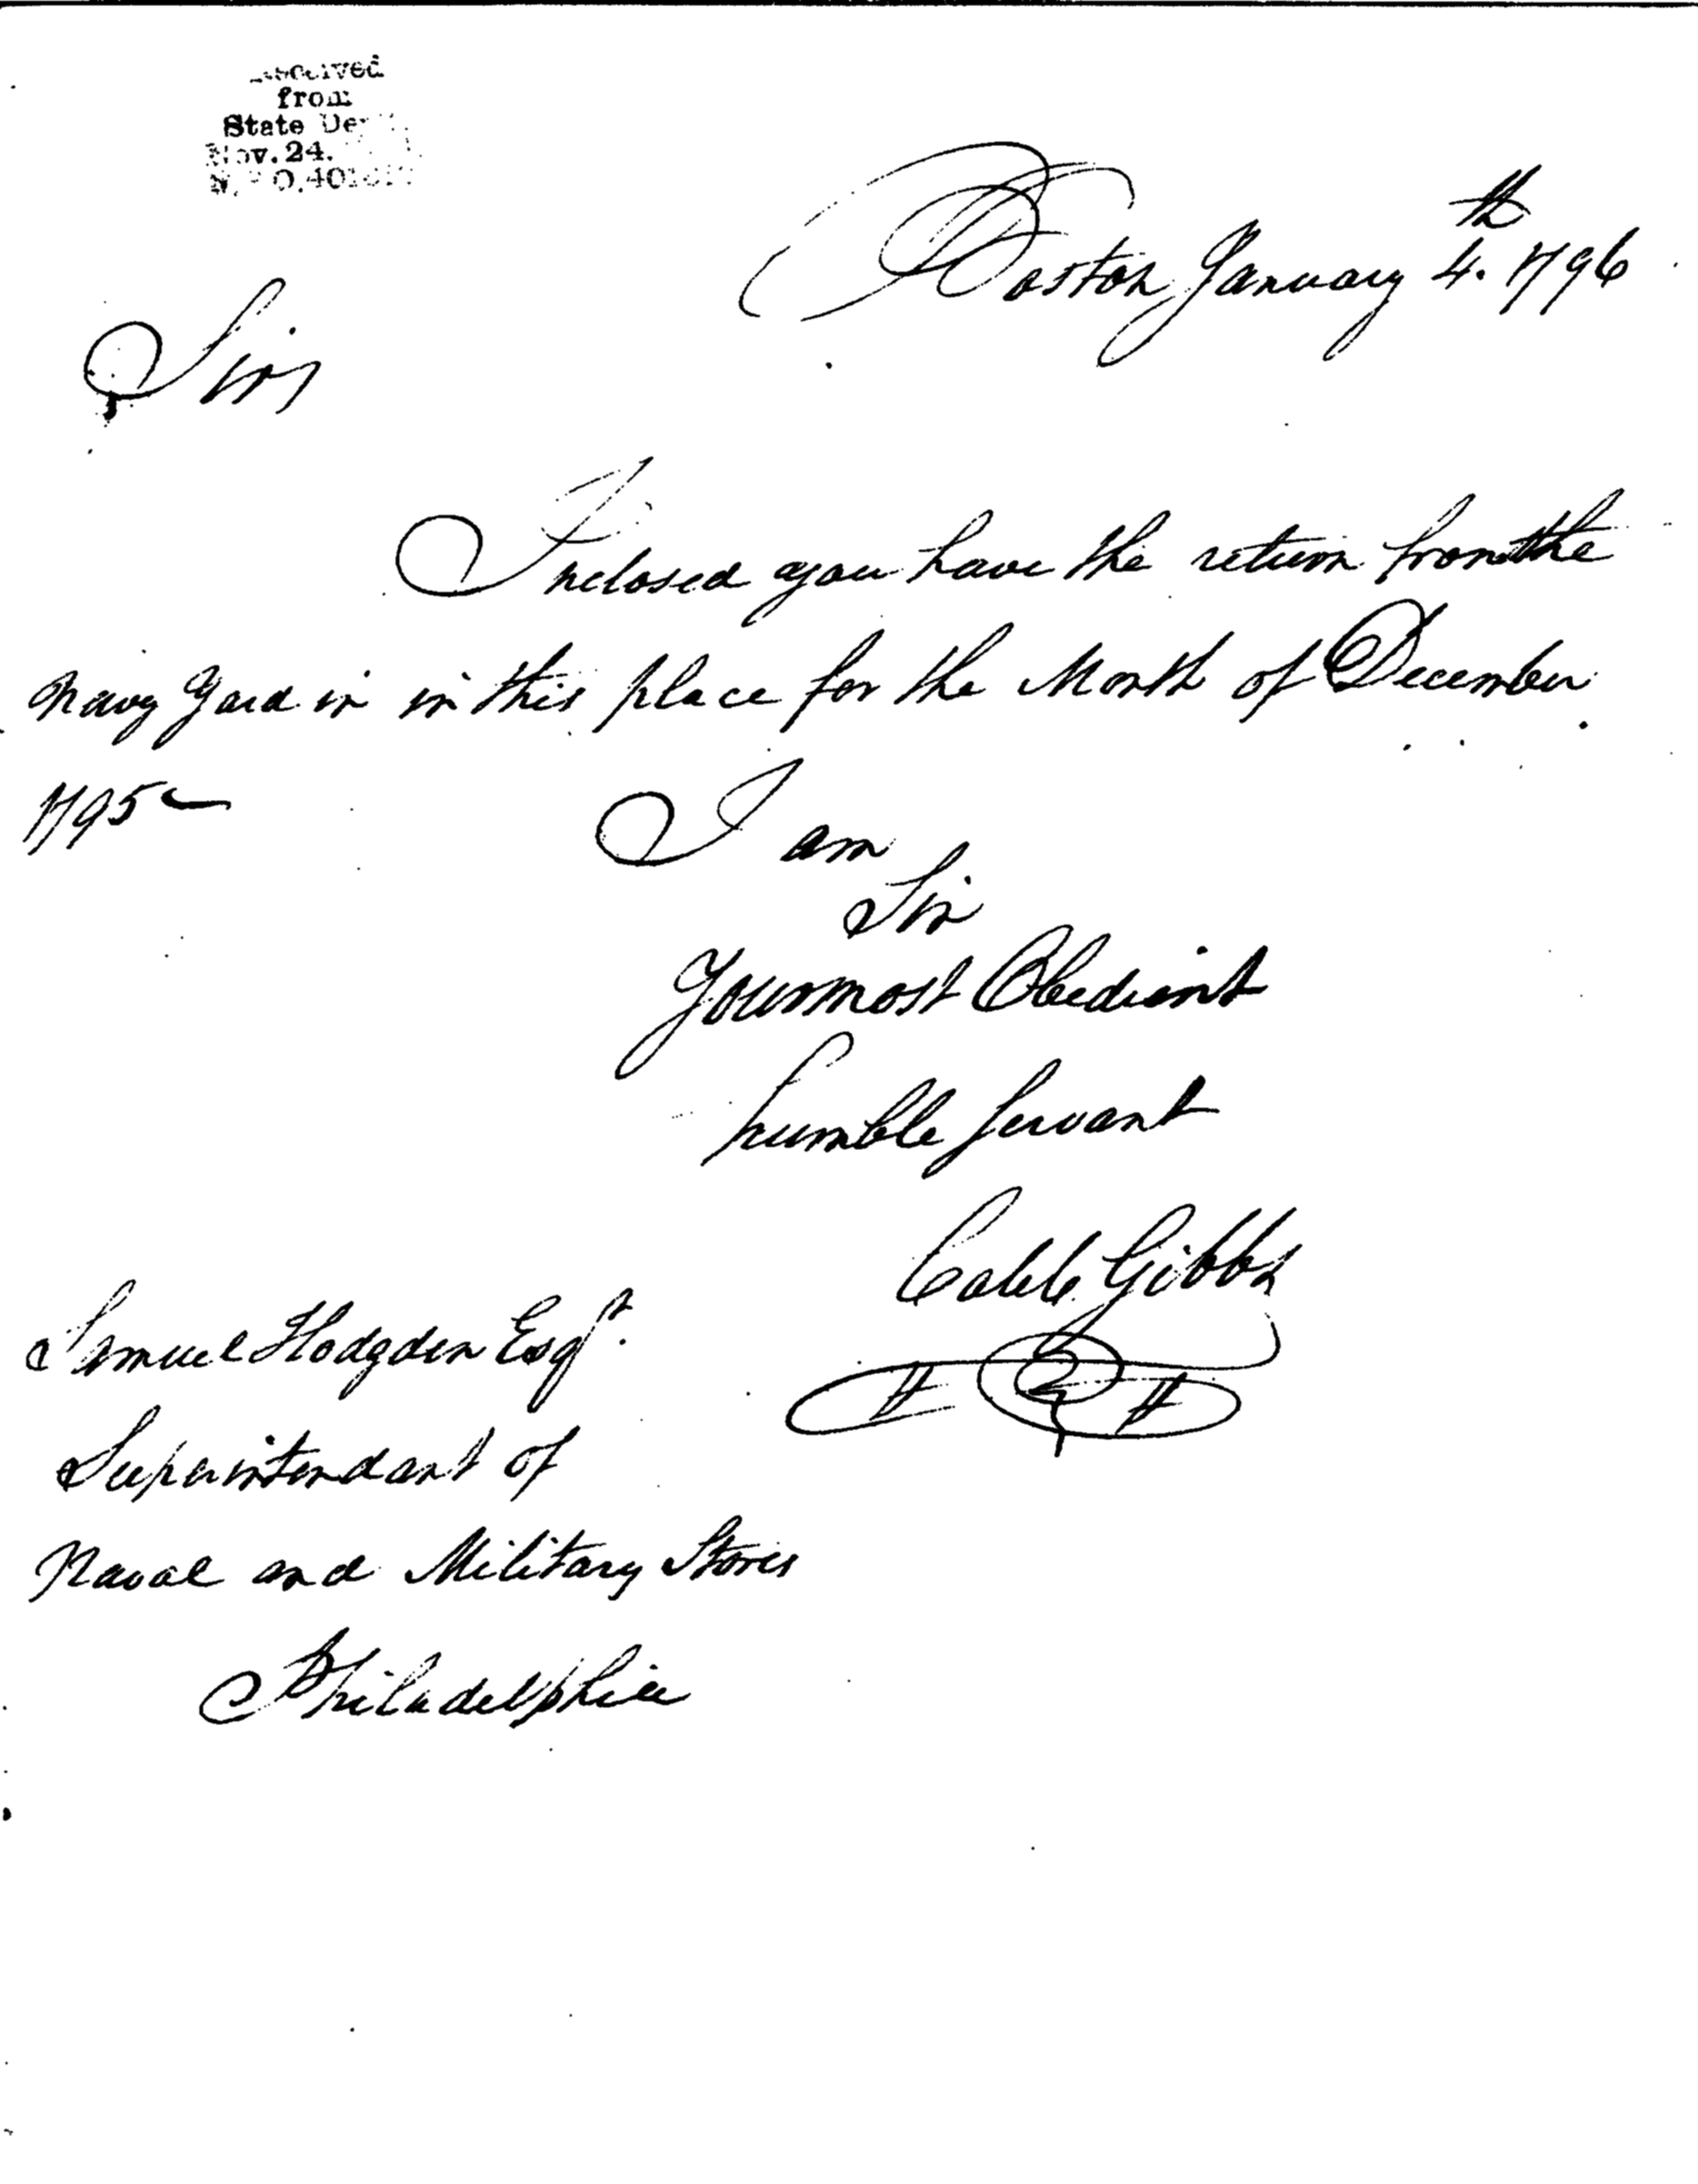 Received
from
State De
Nov. 24.
Boston January 4.th 1796
Sir,
Inclosed you have the return from the
Navy Yard in in this place for the Month of December
1795
I am
Sir
Your most Obedient
humble servant
Caleb Gibbs
Samuel Hodgdon Esqr.
Superintendant of
Naval and Military Stores
Philadelphia